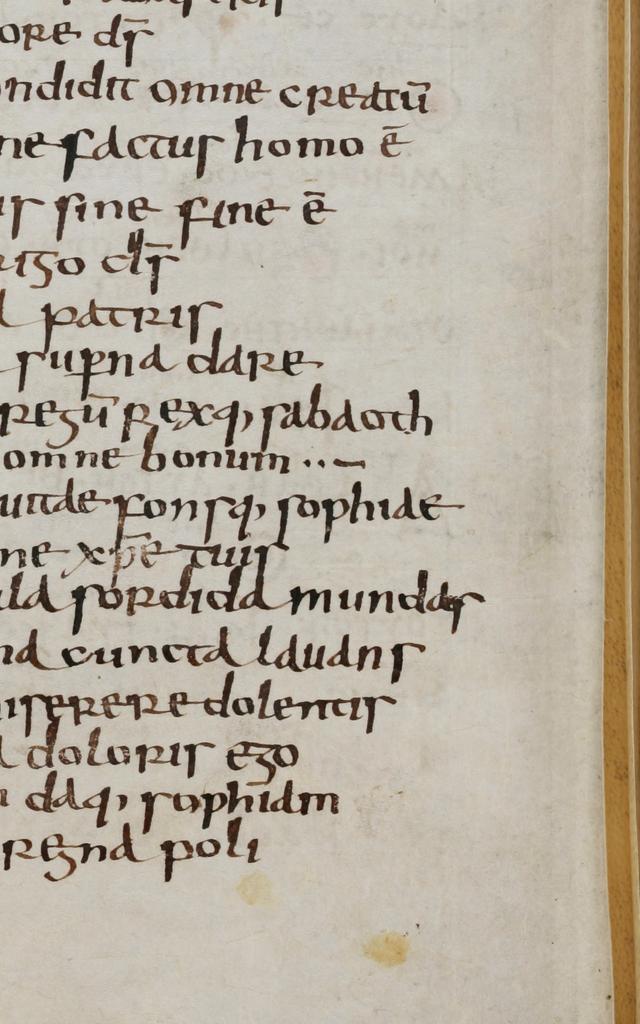 ore dr̄
ondidit omne creatū
ne factus homo ē
us sine fine ē
rigo dr̄
patris
sup̄na dare
regū rexq, sabaoth
omne bonum ..—
uitae fonsq, sophiae
ne xp̄e tuis
ula sordida mundas
na cuncta lauans
miserere dolentis
doloris ego
daq, sophiam
regna poli